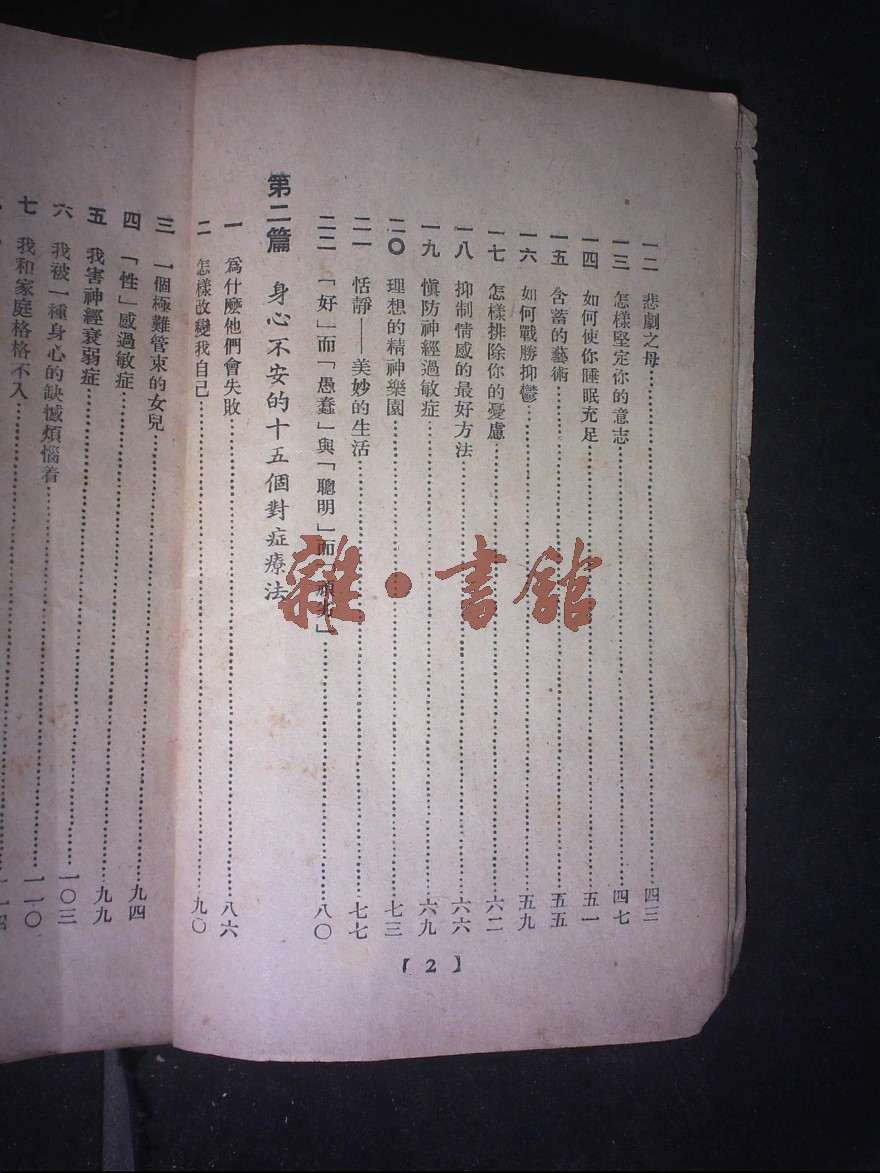 一二　悲劇之母……四三
一三　怎樣堅定你的意志……四七
一四　如何使你睡眠充足……五一
一五　含蓄的藝術……五五
一六　如何戰勝抑鬱……五九
一七　怎樣排除你的憂慮……六二
一八　抑制情感的最好方法……六六
一九　愼防神經過敏症……六九
二〇　理想的精神樂園……七三
二一　恬靜——美妙的生活……七七
二二　「好」而「愚蠢」與「聰明」而「」……八〇
第二篇　身心不安的十五個對症療法
一　爲什麽他們會失敗……八六
二　怎樣改變我自己……九〇
三　一個極難管束的女兒
四　「性」感過敏症……九四
五　我害神經衰弱症……九九
六　我被一種身心的缺憾煩惱着……一〇三
七　我和家庭格格不入……一一〇
【2】
雜·書館